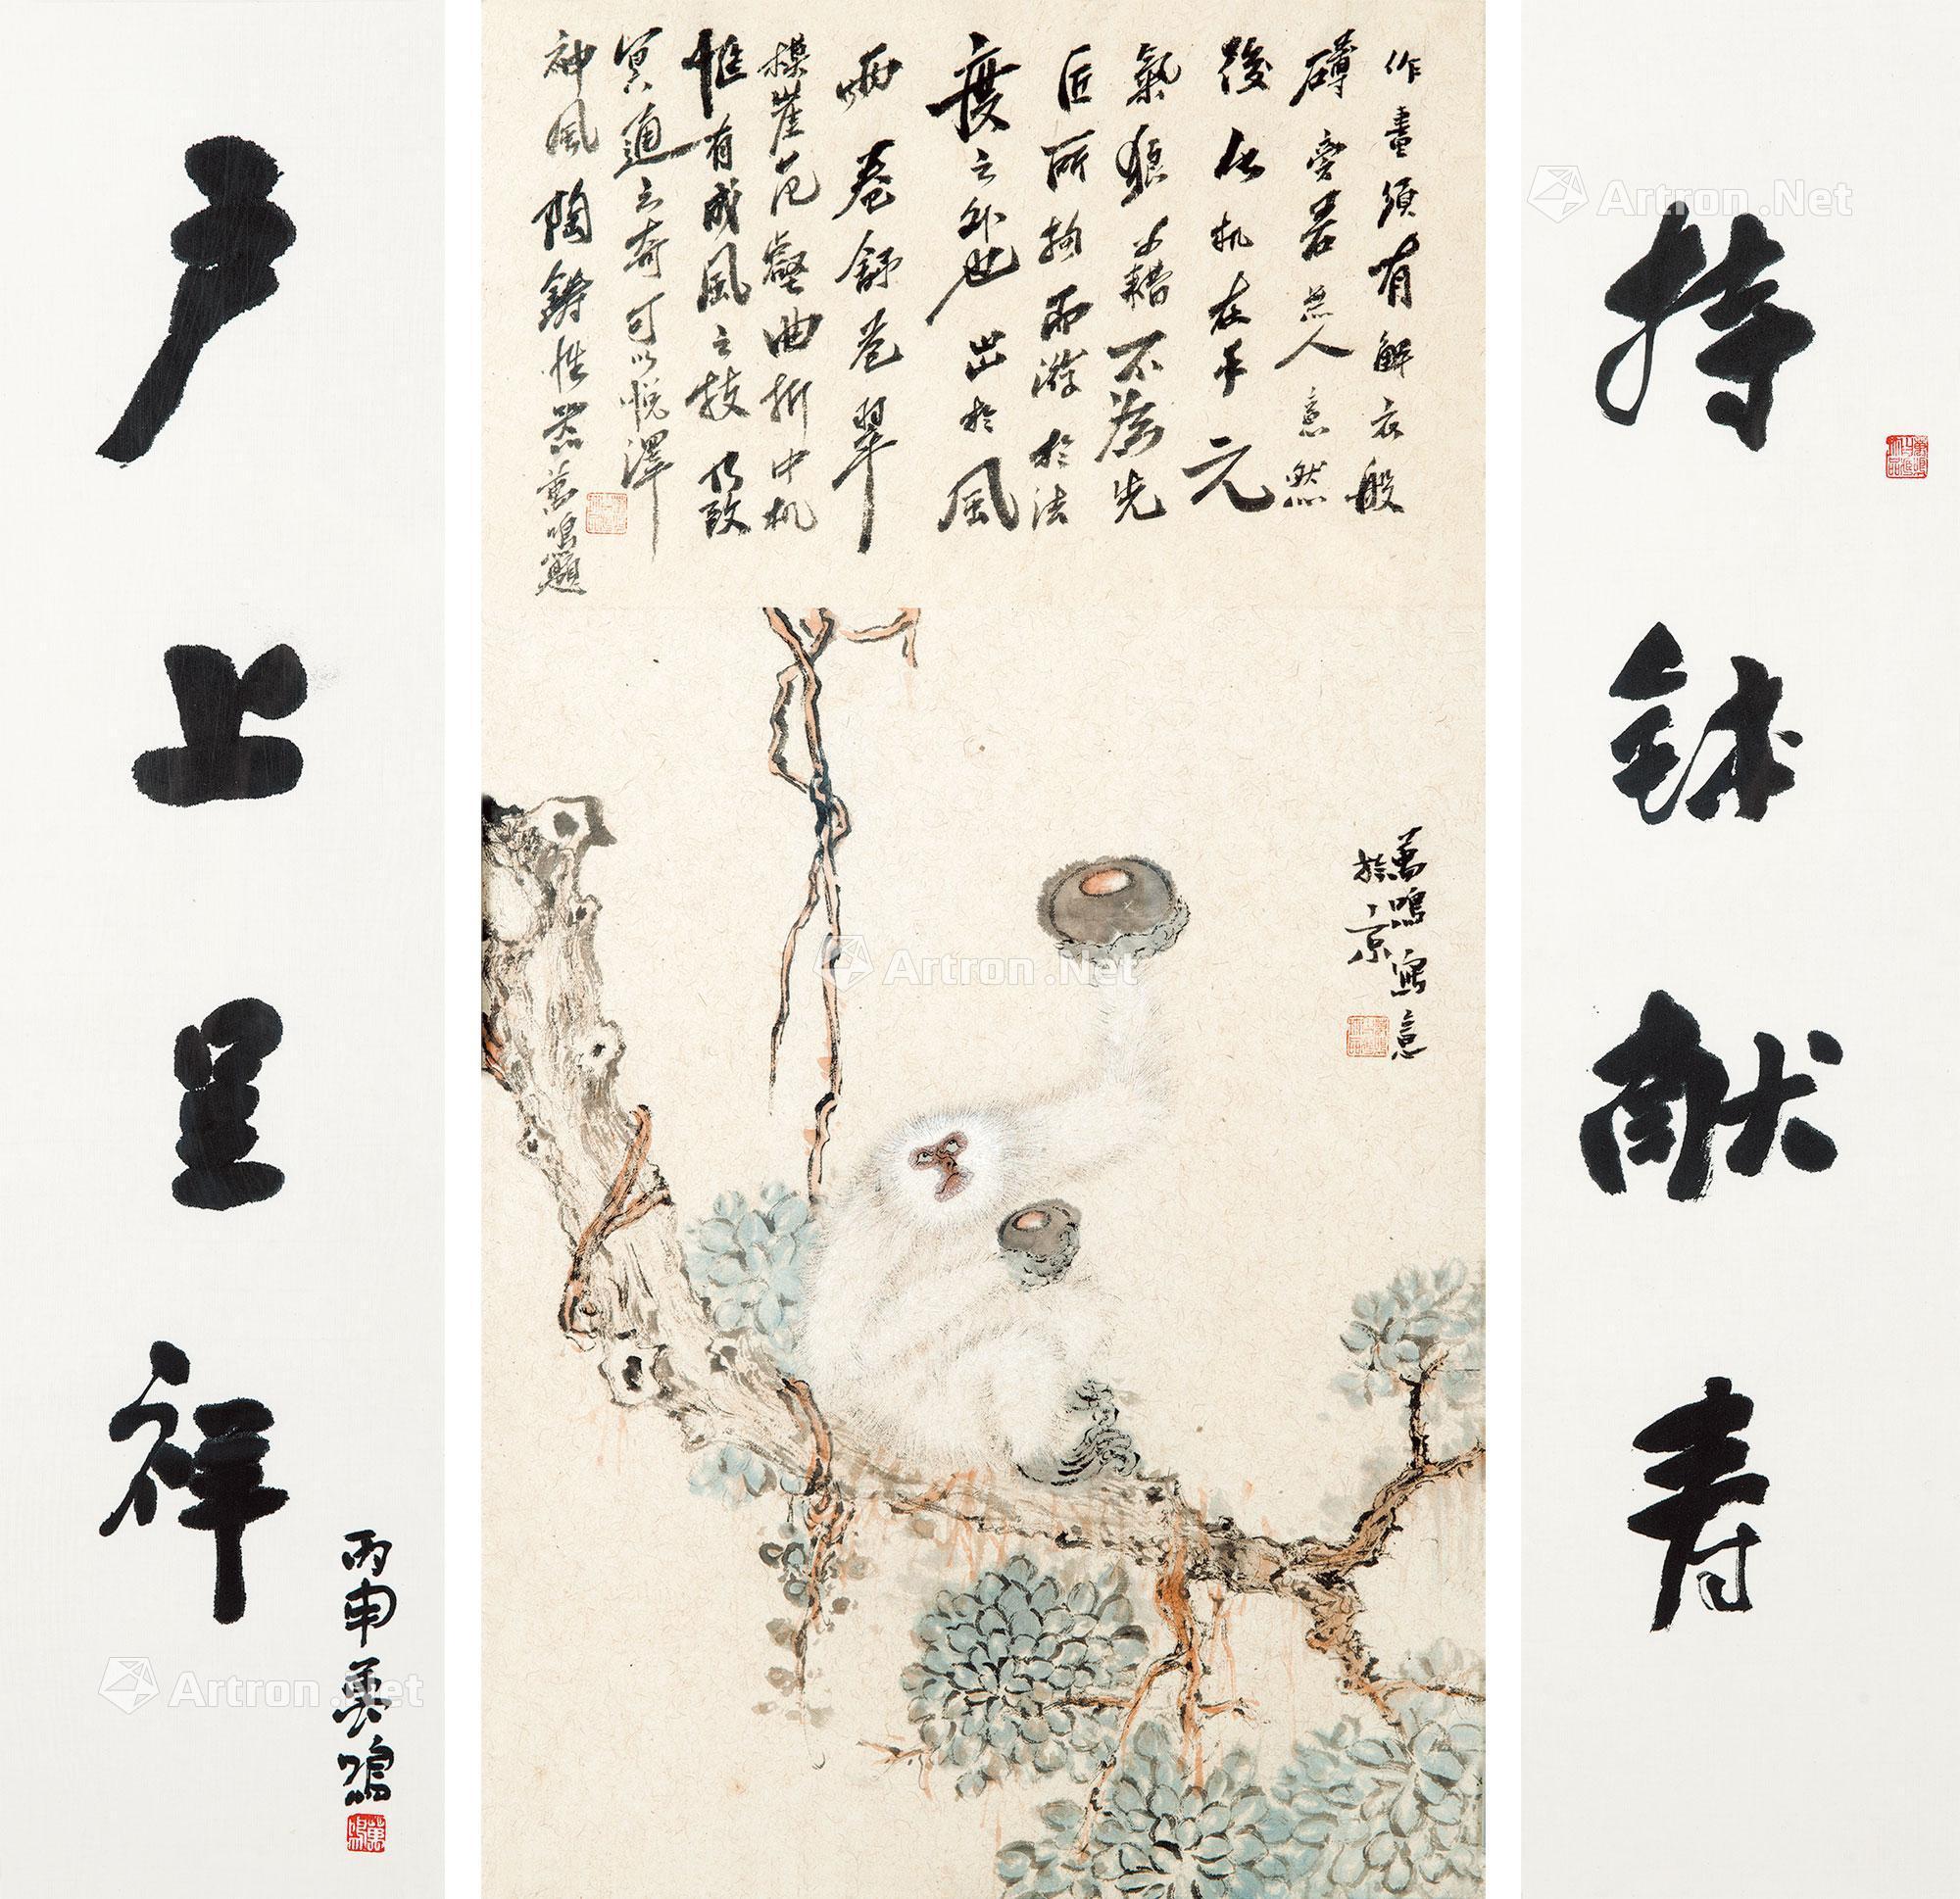 持钵献寿
作畫須有解衣般
礴旁若無人意然
後化机在手元
氣狼藉不為先
匠所拘而游於法
度之外也出於風
雨卷舒苍翠
模崖范壑曲折中机
惟有成風之技乃致
冥通之奇可以悦澤
神風陶鑄性器萬鳴題
萬鳴寫意
於京
户上呈祥
丙申萬鳴
Artron.Net
Artron.Net
Artron.Net